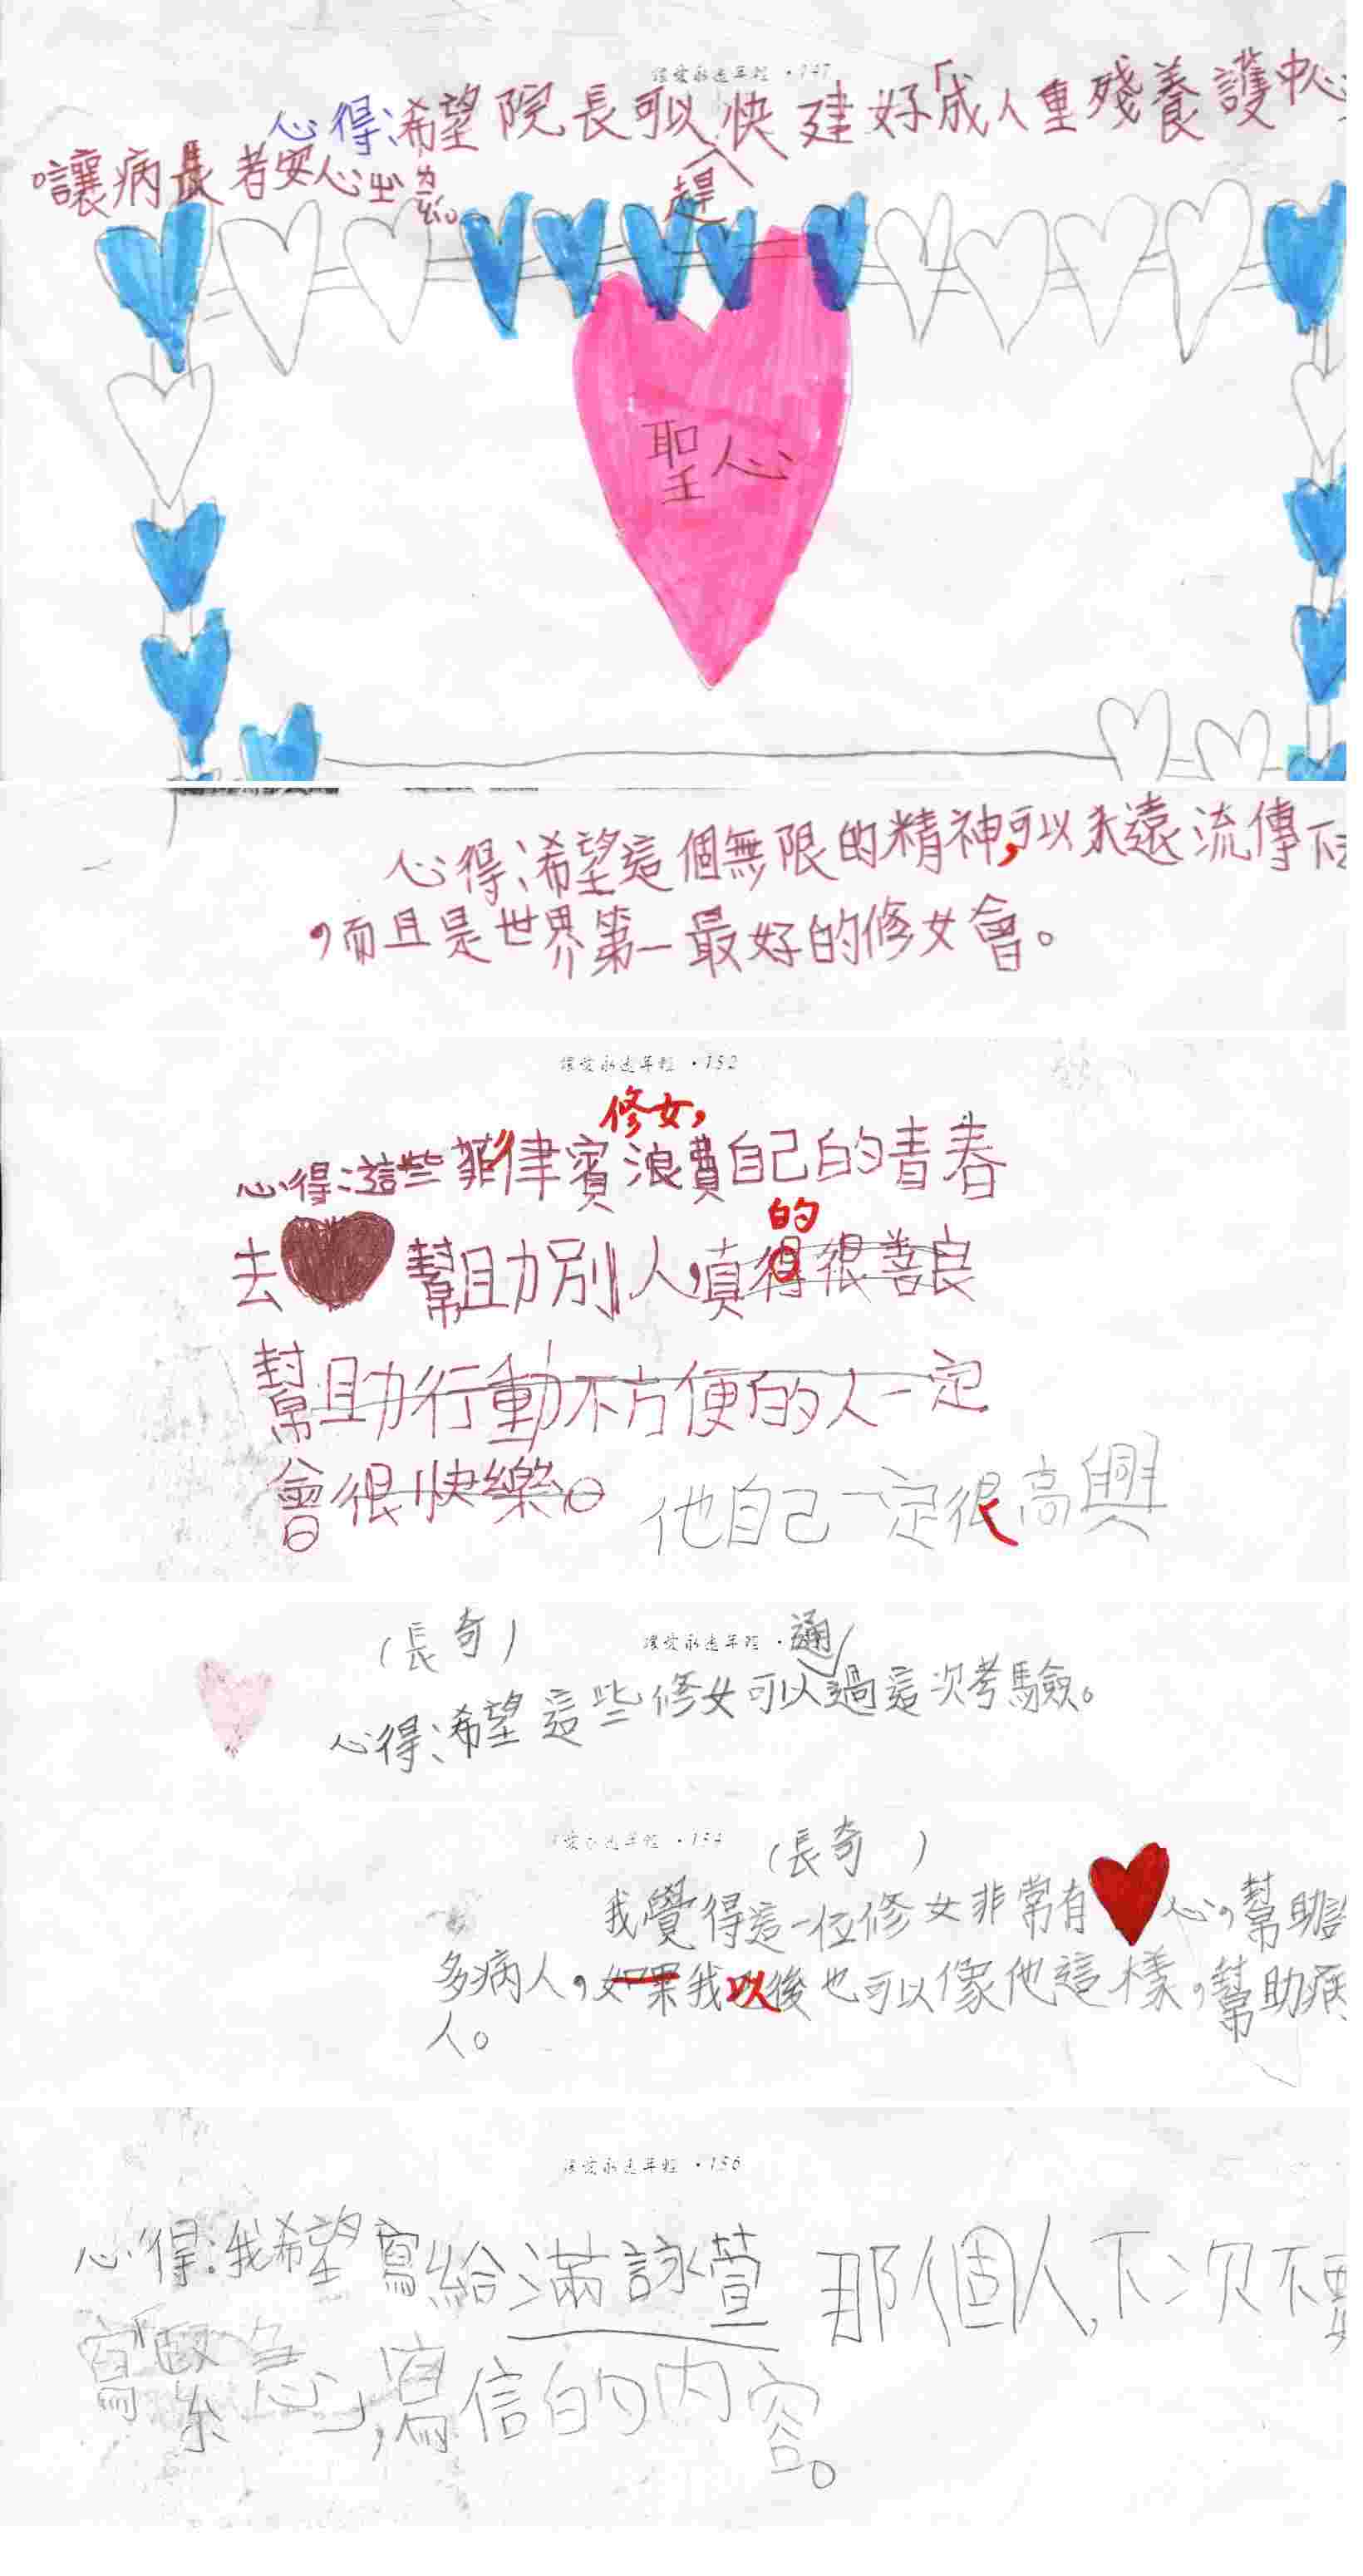 讓愛永遠年輕 ·147
心得:希望院長可以趕快建好「成人重殘養護中心」
,讓病長者安心出去。
聖心
心得:希望這個無限的精神,可以永遠流傳下去
,而且是世界第一最好的修女會。
讓愛永遠年輕 ·152
修女,
心得:這些菲律賓浪費自己的青春
的
去 幫助別人,真得很善良
幫助行動不方便的人一定
會很快樂。他自己一定很高興
(長奇)
讓愛永遠年輕 ·
心得:希望這些修女可以通過這次考驗。
愛永遠年輕 ·154
(長奇 )
我覺得這一位修女非常有 心,幫助許
多病人,如果我以後也可以像他這樣,幫助病
人。
讓愛永遠年輕 ·156
心得:我希望寫給滿詠萱 那個人,下次不要
寫「緊急」,寫信的內容。